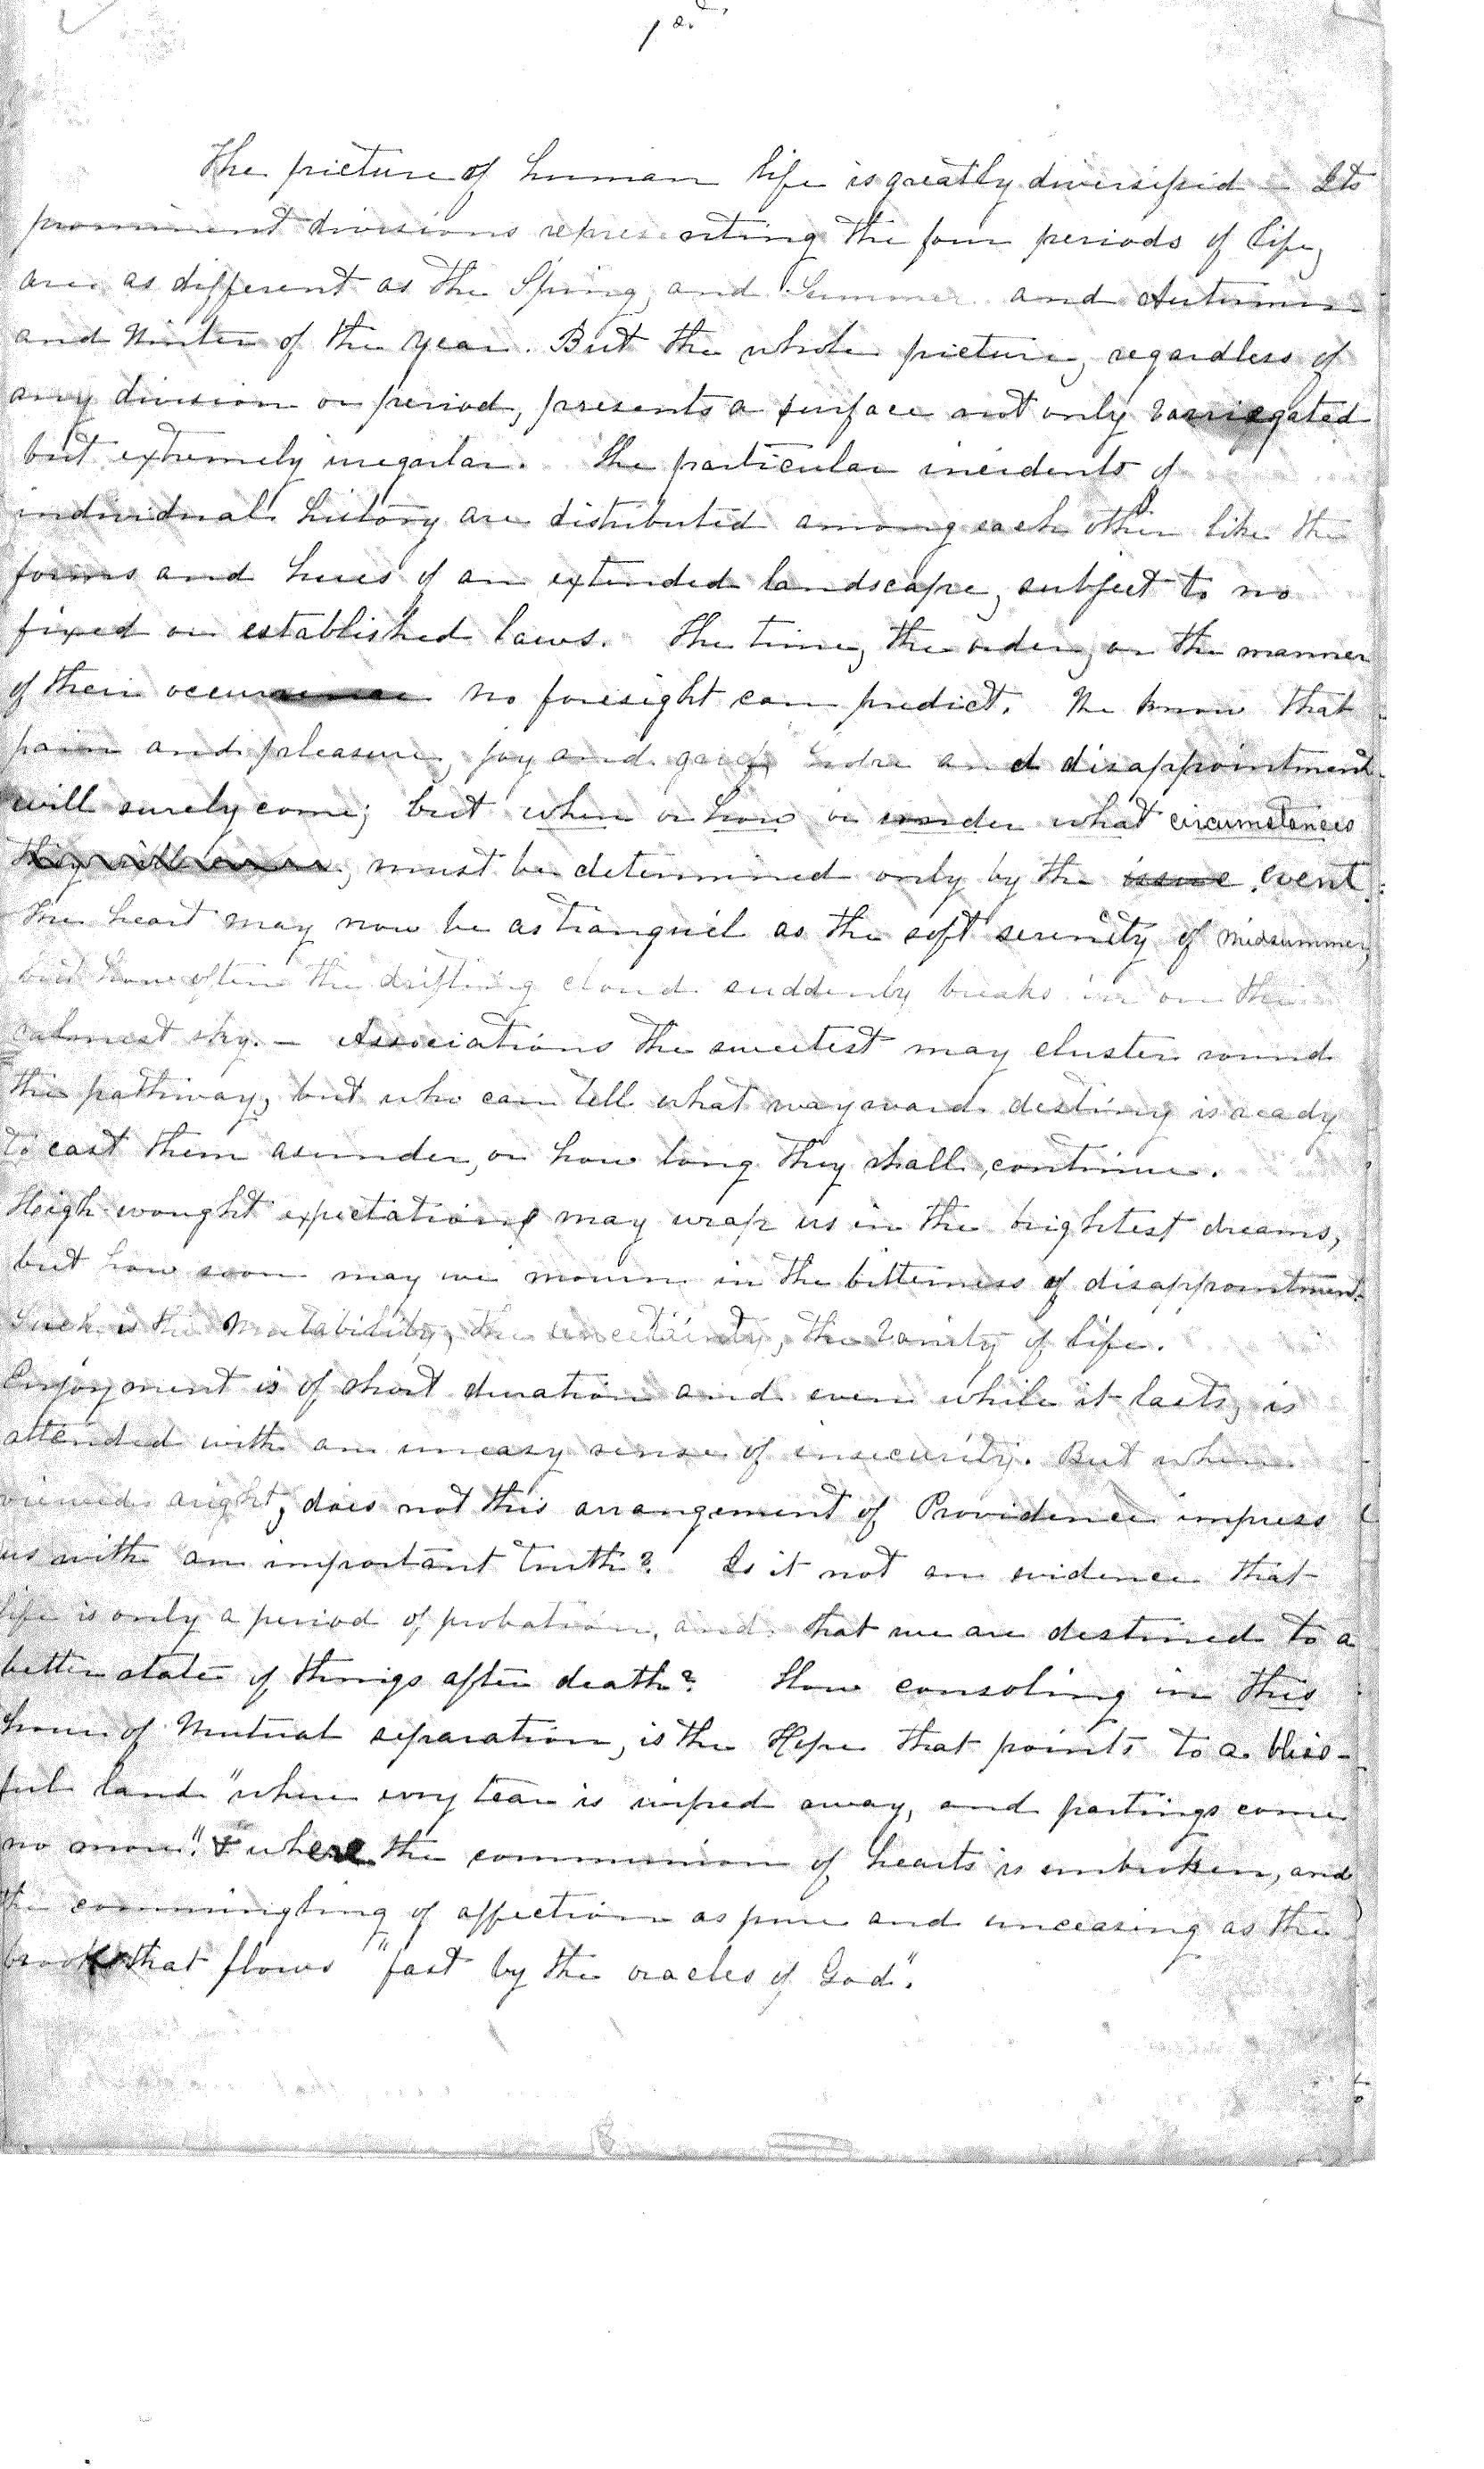 The picture of human life is greatly diversified - Its
prominent divisions representing the four periods of life,
are as different as the Spring, and Summer and Autumn
and Winter of the year. But the whole picture, regardless of
any division or period, presents a surface not only varriegated
but extremely iregular. The particular incidents of
individual history are distributed among each other like the
forms and hues of an extended landscape, subject to no
fixed or established laws. The time, the order, or the manner
of their occurrence no foresight can predict. We know that
pain and pleasure, joy and grief, and disappointment
will surely come; but when or how or under what circumstances
they will, must be determined only by the issue event.
The heart may now be as tranquil as the soft serenity of midsummer,
but how often the drifting cloud suddenly breaks in on the
calmest sky. - Associations the sweetest may cluster round
the pathway, but who can tell what wayward destiny is ready
to cast them asunder, or how long they shall continue.
High-wrought expectations may wrap us in the brightest dreams,
but how soon may we mourn in the bitterness of disappointment.
Such is the mutability, the uncertainty, the vanity of life.
Enjoyment is of short duration and even while it lasts, is
attended with an uneasy sense of insecurity. But when
viewed aright, does not this arrangement of Providence impress
us with an important truth? Is it not an evidence that
life is only a period of probation, and that we are destined to a
better state of things after death? How consoling in this
hour of mutual separation, is the Hope that points to a bliss-
ful land "where every tear is wiped away, and partings come
no more." & where the communion of hearts is unbroken, and
the commingling of affection as pure and unceasing as the
brook that flows "fast by the oracles of God".